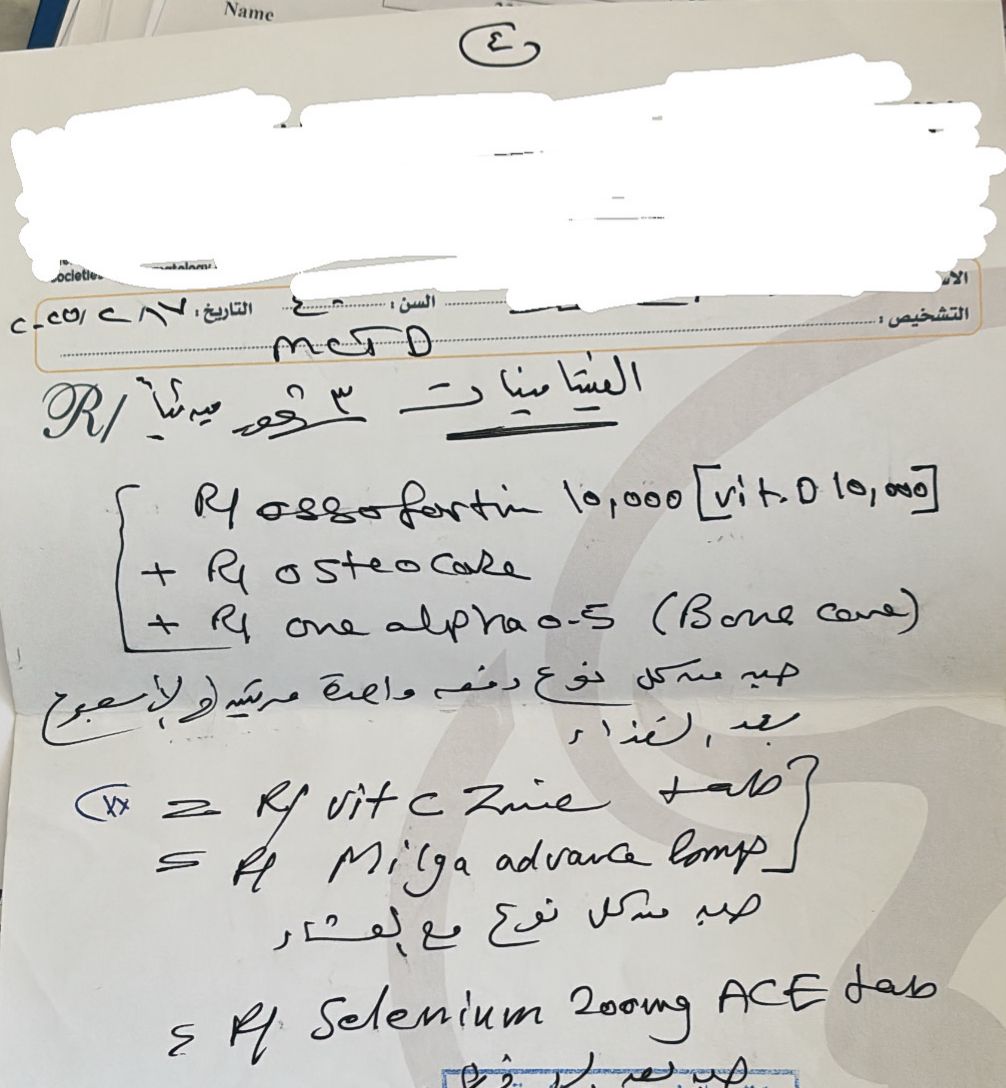 Name
٤
التاريخ : ٢٠٢٥/٨/٧ السن :
التشخيص :
MCTD
R/ الفيتامينات ٣ شهور مبدئياً
R/ ossofortin 10,000 [vit. D 10,000]
+ R/ osteocare
+ R/ one alpha 0.5 (Bone care)
حبه من كل نوع دفعه واحدة مرتين في الأسبوع
بعد الغذاء
= R/ vit c Zinc tab
= R/ Milga advance
حبه من كل نوع مع العشاء
٤ R/ Selenium 200mg ACE tab
حبه بعد